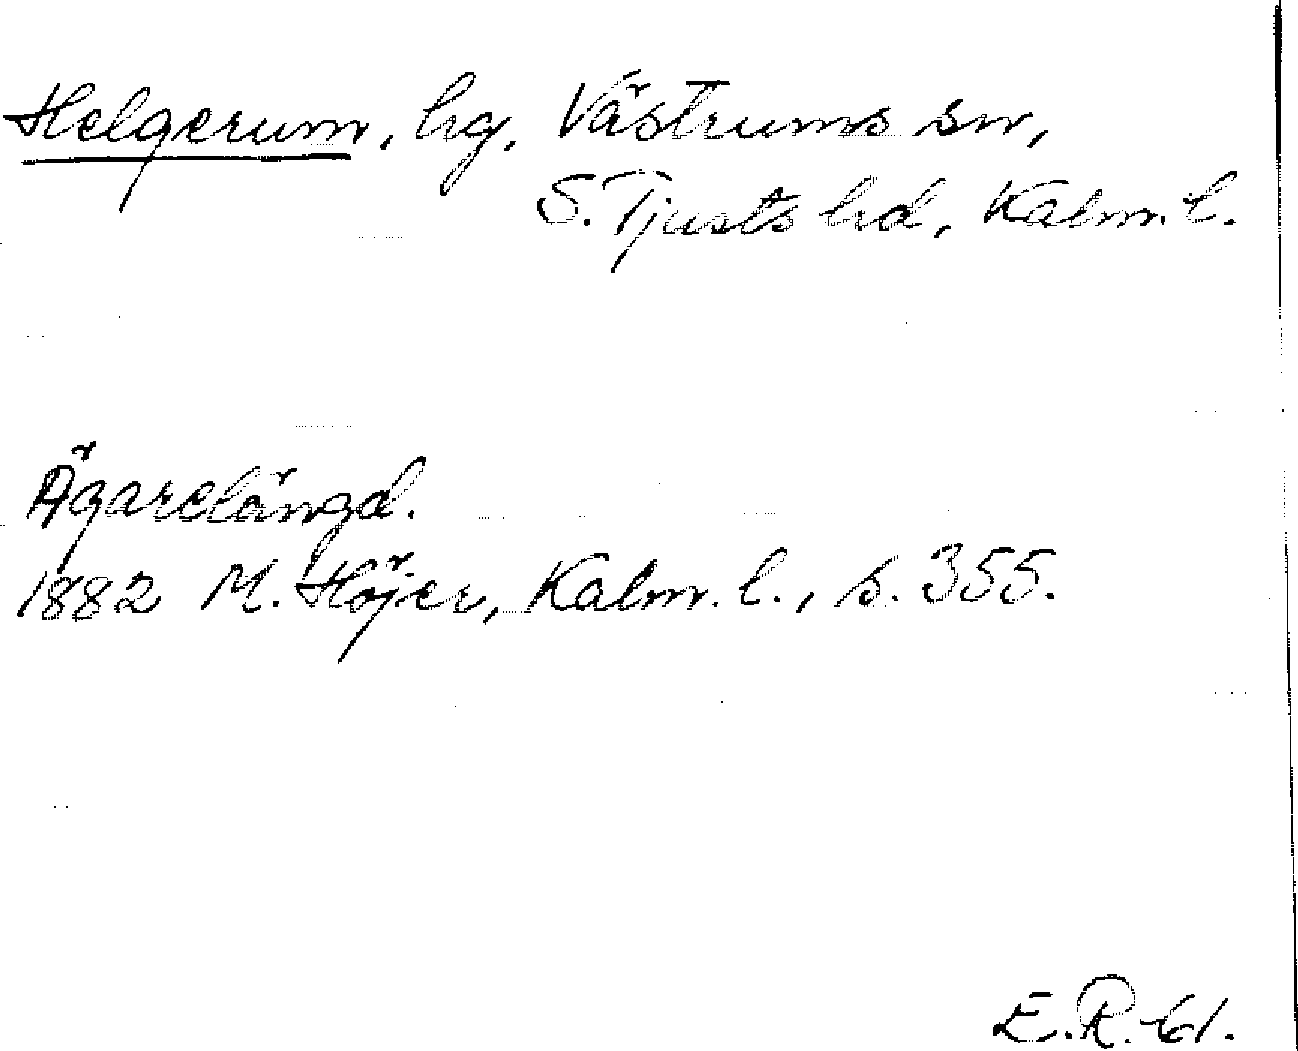 Helgerum, hg, Västrums sn,
S. Tjusts hd, Kalm. l.
Ägarelängd.
1882 M. Höjer, Kalm. l., s. 355.
E.R.-61.